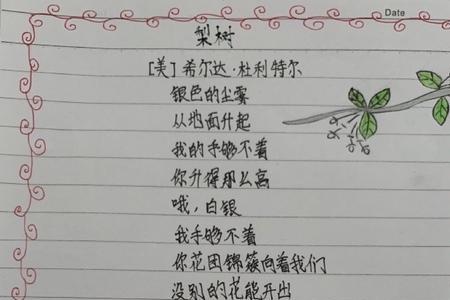 Date
梨树
[美]希尔达·杜利特尔
银色的尘雾
从地面升起
我的手够不着
你升得那么高
哦，白银
我手够不着
你花团锦簇向着我们
没别的花能开出